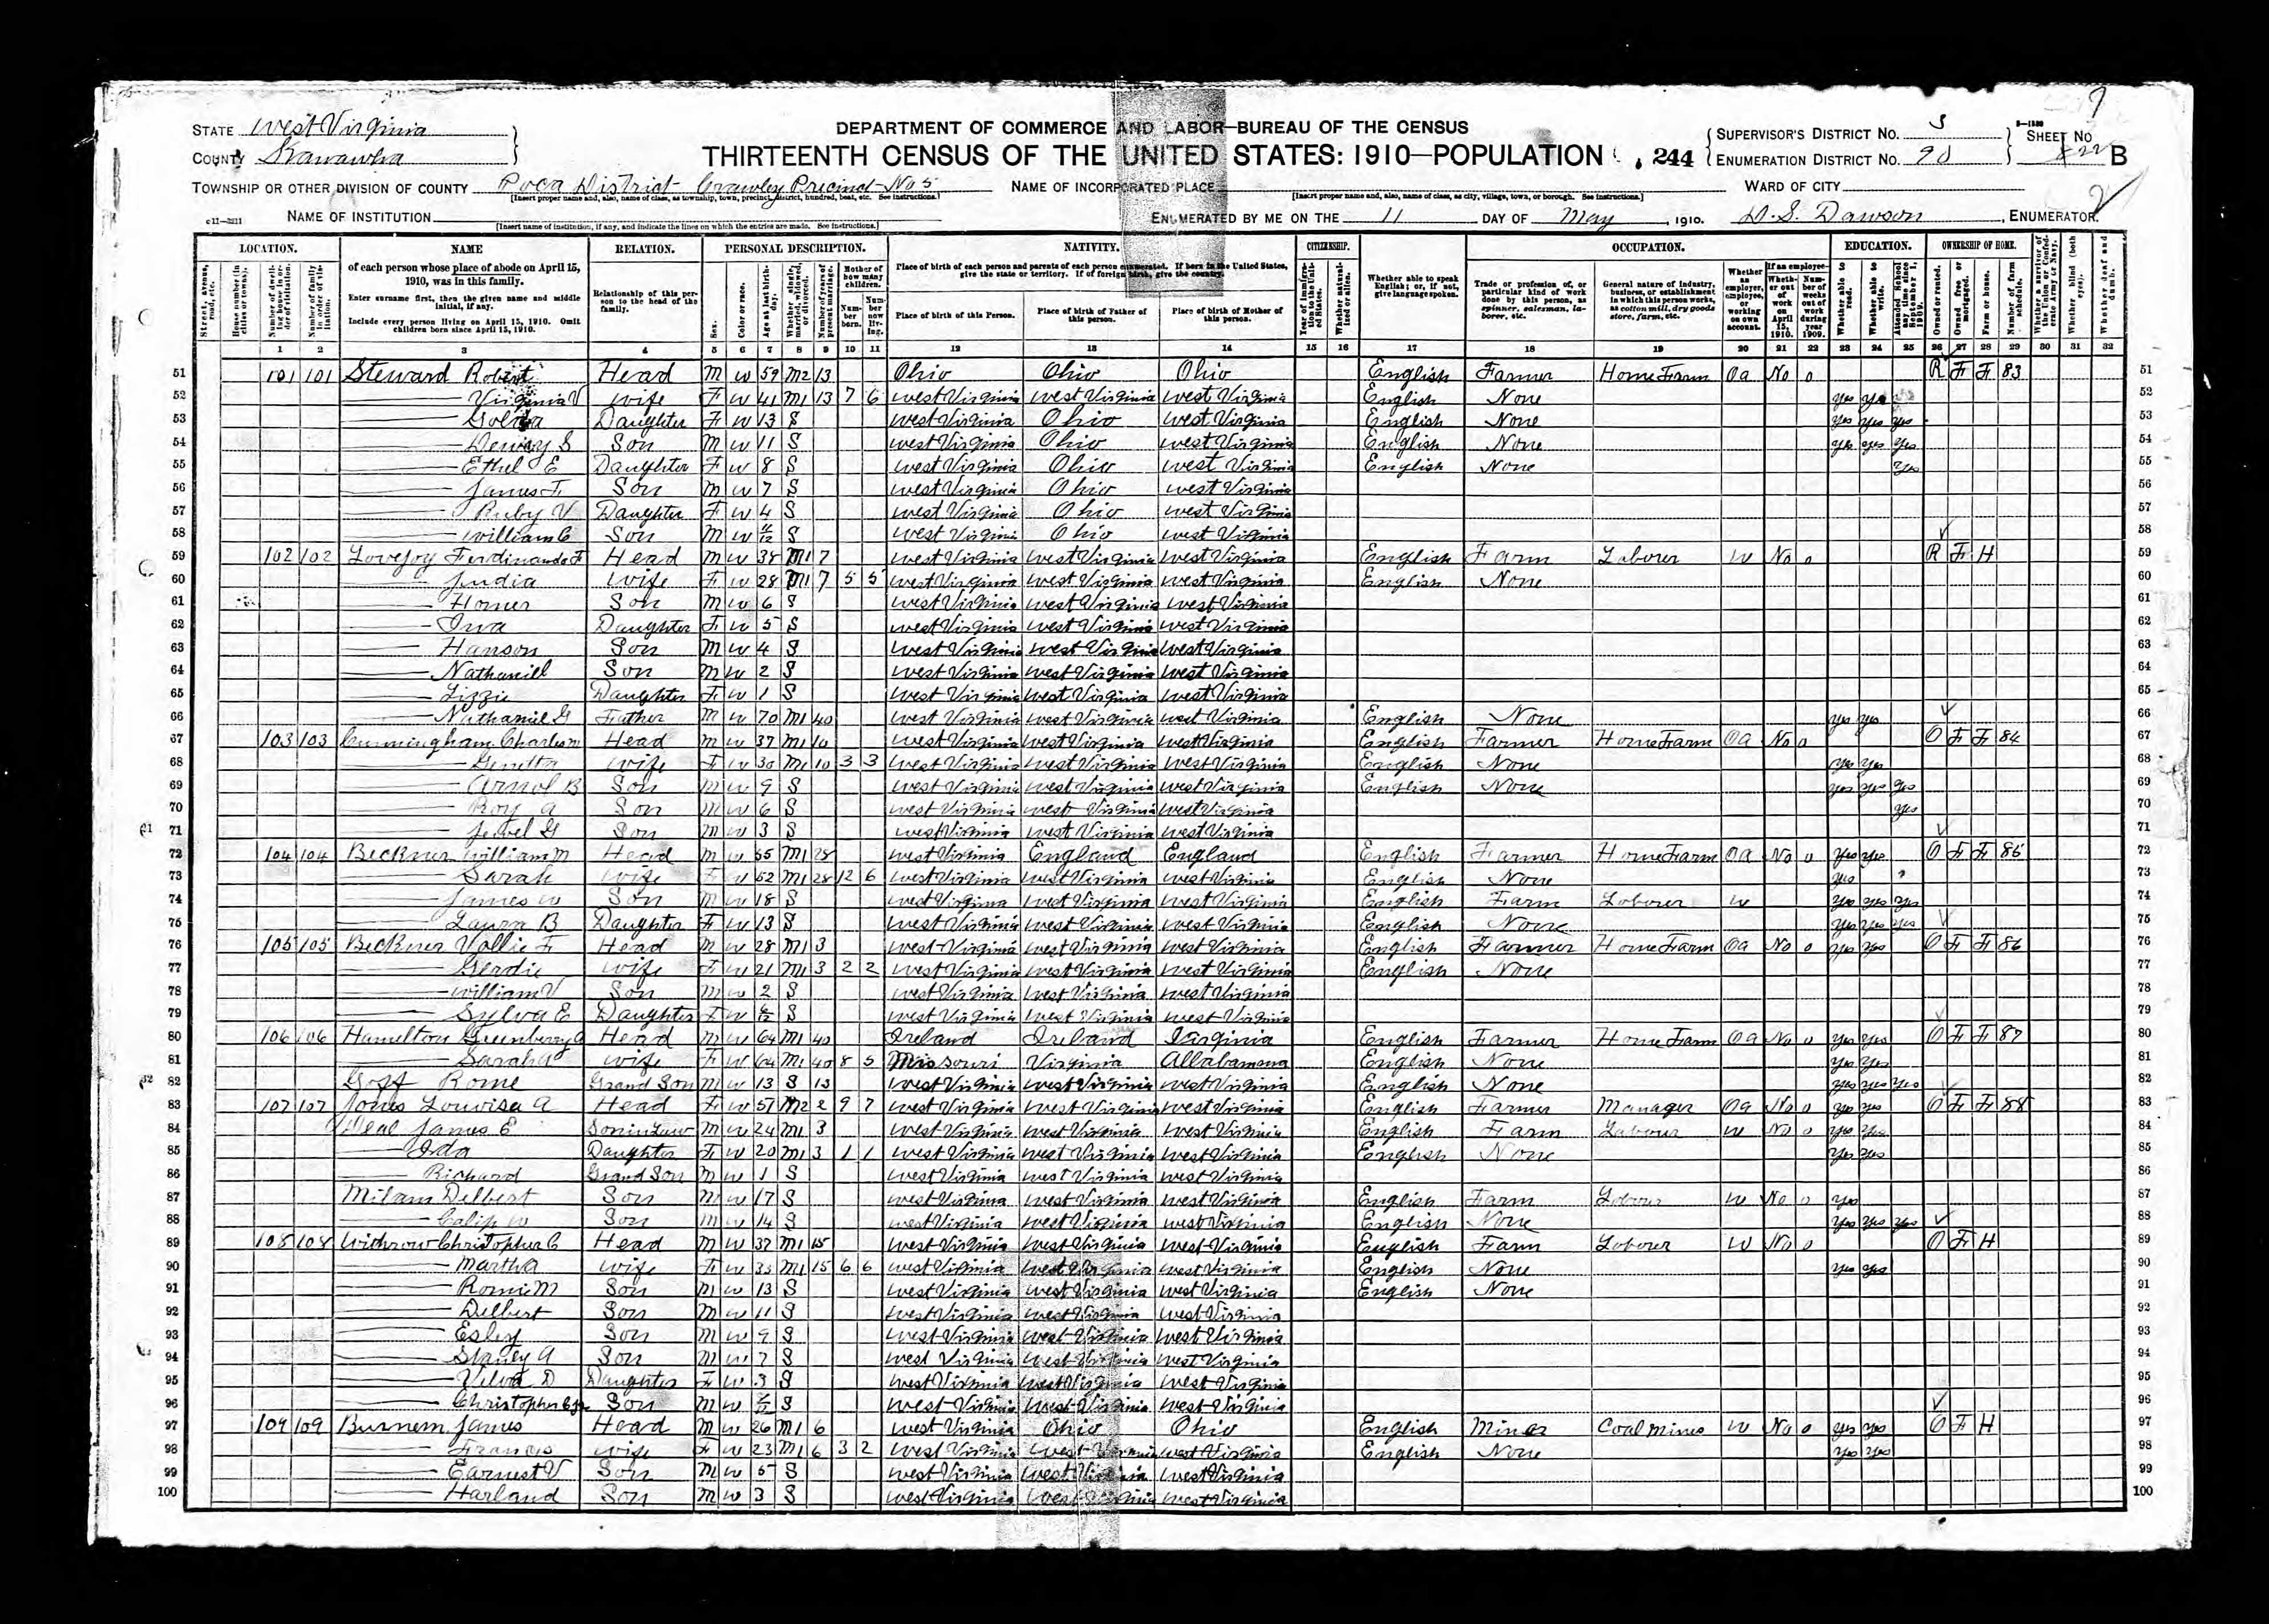 9
STATE West Virginia
COUNTY Kanawha
DEPARTMENT OF COMMERCE AND LABOR—BUREAU OF THE CENSUS
THIRTEENTH CENSUS OF THE UNITED STATES: 1910—POPULATION
244
SUPERVISOR'S DISTRICT NO. 3
ENUMERATION DISTRICT NO. 90
SHEET NO B
TOWNSHIP OR OTHER DIVISION OF COUNTY Poca District Crawley Precinct No 5
[Insert proper name and, also, name of class, as township, town, precinct, district, hundred, beat, etc. See instructions.]
NAME OF INCORPORATED PLACE
[Insert proper name and, also, name of class, as city, village, town, or borough. See instructions.]
WARD OF CITY
NAME OF INSTITUTION
[Insert name of institution, if any, and indicate the lines on which the entries are made. See instructions.]
ENUMERATED BY ME ON THE 11 DAY OF May, 1910. D. S. Dawson, ENUMERATOR.
LOCATION. NAME RELATION. PERSONAL DESCRIPTION. NATIVITY. CITIZENSHIP. OCCUPATION. EDUCATION. OWNERSHIP OF HOME.
1 2 3 4 5 6 7 8 9 10 11 12 13 14 15 16 17 18 19 20 21 22 23 24 25 26 27 28 29 30 31 32
51 101 101 Steward Robert Head M W 59 M2 13 Ohio Ohio Ohio English Farmer Home Farm Oa No 0 R F F 83 51
52 Virginia V wife F W 41 M1 13 7 6 West Virginia West Virginia West Virginia English None yes yes 52
53 Golda Daughter F W 13 S West Virginia Ohio West Virginia English None yes yes yes 53
54 Dewey S Son M W 11 S West Virginia Ohio West Virginia English None yes yes yes 54
55 Ethel E Daughter F W 8 S West Virginia Ohio West Virginia English None yes 55
56 James F Son M W 7 S West Virginia Ohio West Virginia 56
57 Ruby V Daughter F W 4 S West Virginia Ohio West Virginia 57
58 William C Son M W S West Virginia Ohio West Virginia 58
59 102 102 Lovejoy Ferdinando F Head M W 38 M1 7 West Virginia West Virginia West Virginia English Farm Laborer W No 0 R F H 59
60 Judia wife F W 28 M1 7 5 5 West Virginia West Virginia West Virginia English None 60
61 Homer Son M W 6 S West Virginia West Virginia West Virginia 61
62 Iva Daughter F W 5 S West Virginia West Virginia West Virginia 62
63 Hanson Son M W 4 S West Virginia West Virginia West Virginia 63
64 Nathaniell Son M W 2 S West Virginia West Virginia West Virginia 64
65 Lizzie Daughter F W 1 S West Virginia West Virginia West Virginia 65
66 Nathaniel G Father M W 70 M1 40 West Virginia West Virginia West Virginia English None yes yes 66
67 103 103 Cunningham Charles M Head M W 37 M1 10 West Virginia West Virginia West Virginia English Farmer Home Farm Oa No 0 O F F 84 67
68 Genetta wife F W 30 M1 10 3 3 West Virginia West Virginia West Virginia English None yes yes 68
69 Arnol B Son M W 9 S West Virginia West Virginia West Virginia English None yes yes yes 69
70 Roy A Son M W 6 S West Virginia West Virginia West Virginia yes 70
71 Jewel G Son M W 3 S West Virginia West Virginia West Virginia 71
72 104 104 Beckner William M Head M W 55 M1 28 West Virginia England England English Farmer Home Farm Oa No 0 yes yes O F F 85 72
73 Sarah wife F W 52 M1 28 12 6 West Virginia West Virginia West Virginia English None yes 73
74 James W Son M W 18 S West Virginia West Virginia West Virginia English Farm Laborer W yes yes yes 74
75 Laura B Daughter F W 13 S West Virginia West Virginia West Virginia English None yes yes yes 75
76 105 105 Beckner Vallie F Head M W 28 M1 3 West Virginia West Virginia West Virginia English Farmer Home Farm Oa No 0 yes yes O F F 86 76
77 Gerdie wife F W 21 M1 3 2 2 West Virginia West Virginia West Virginia English None 77
78 William V Son M W 2 S West Virginia West Virginia West Virginia 78
79 Sylva E Daughter F W S West Virginia West Virginia West Virginia 79
80 106 106 Hamelton Greenberry A Head M W 64 M1 40 Ireland Ireland Virginia English Farmer Home Farm Oa No 0 yes yes O F F 87 80
81 Sarah A wife F W 64 M1 40 8 5 Missouri Virginia Allabamana English None yes yes 81
82 Goff Rome Grand Son M W 13 S 13 West Virginia West Virginia West Virginia English None yes yes yes 82
83 107 107 Jones Louvisa A Head F W 57 M2 2 9 7 West Virginia West Virginia West Virginia English Farmer Manager Oa No 0 yes yes O F F 88 83
84 Deal James E Son in Law M W 24 M1 3 West Virginia West Virginia West Virginia English Farm Labour W No 0 yes yes 84
85 Ida Daughter F W 20 M1 3 1 1 West Virginia West Virginia West Virginia English None yes yes 85
86 Richard Grand Son M W 1 S West Virginia West Virginia West Virginia 86
87 Milam Delbert Son M W 17 S West Virginia West Virginia West Virginia English Farm Labour W No 0 yes 87
88 Calip W Son M W 14 S West Virginia West Virginia West Virginia English None yes yes yes 88
89 108 108 Withrow Christopher C Head M W 37 M1 15 West Virginia West Virginia West Virginia English Farm Laborer W No 0 O F H 89
90 Martha wife F W 33 M1 15 6 6 West Virginia West Virginia West Virginia English None yes yes 90
91 Romie M Son M W 13 S West Virginia West Virginia West Virginia English None 91
92 Delbert Son M W 11 S West Virginia West Virginia West Virginia 92
93 Esley Son M W 9 S West Virginia West Virginia West Virginia 93
94 Stanley A Son M W 7 S West Virginia West Virginia West Virginia 94
95 Velva D Daughter F W 3 S West Virginia West Virginia West Virginia 95
96 Christopher C Jr Son M W S West Virginia West Virginia West Virginia 96
97 109 109 Burnem James Head M W 26 M1 6 West Virginia Ohio Ohio English Miner Coal Mines W No 0 yes yes O F H 97
98 Frances wife F W 23 M1 6 3 2 West Virginia West Virginia West Virginia English None yes yes 98
99 Earnest V Son M W 5 S West Virginia West Virginia West Virginia 99
100 Harland Son M W 3 S West Virginia West Virginia West Virginia 100